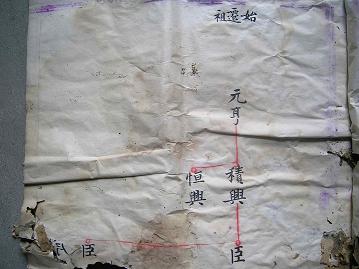 始遷祖
元亨
積興
恒興
臣
臣